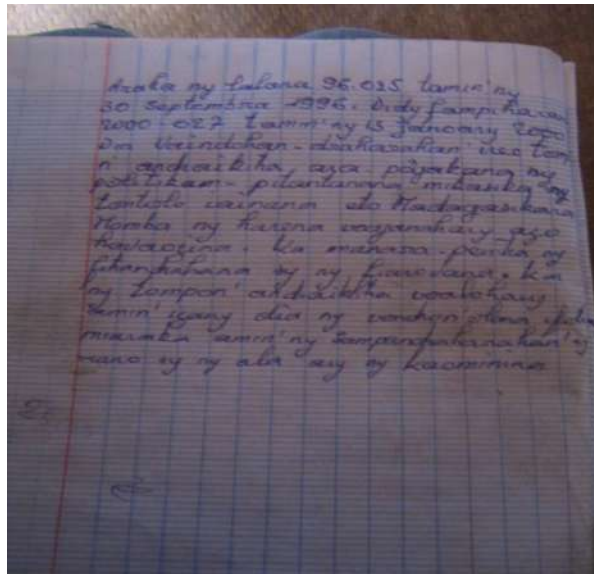 Araka ny lalana 96.025 tamin'ny
30 Septembra 1996. Didy fampiharana
2000.027 tamin'ny 13 Janoary 2000
Dia tompon
n'andraikitra ny
politikam-pitantanana mikasika ny
tontolo iainana eto Madagasikara
Momba ny harena voajanahary azo
havaozina. Ka manasa ny
fitandrohana sy ny fiarovana. Ka
ny tompon'andraikitra voalohany
amin'izany dia ny vondron'olona ifotony
miaraka amin'ny sampandraharahan'ny
rano sy ny ala ary ny kaominina